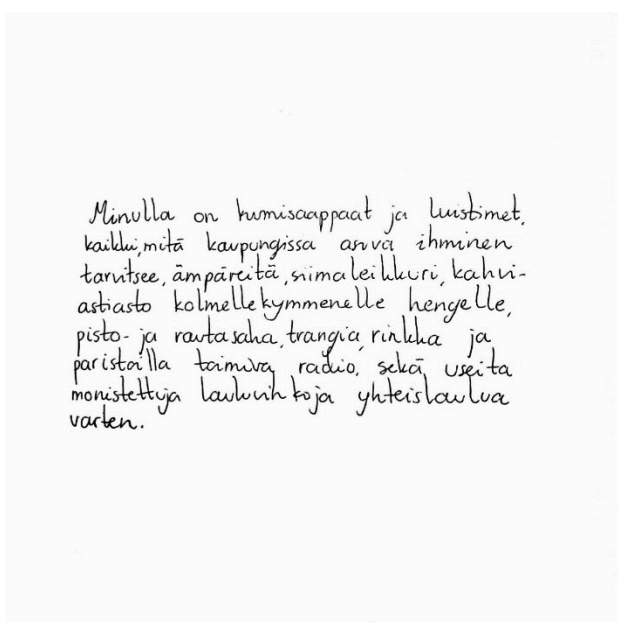 Minulla on kumisaappaat ja luistimet,
kaikki, mitä kaupungissa asuva ihminen
tarvitsee, ämpäreitä, siimaleikkuri, kahvi-
astiasto kolmellekymmenelle hengelle,
pisto- ja rautasaha, trangia, rinkka ja
paristoilla toimiva radio, sekä useita
monistettuja lauluvihkoja yhteislaulua
varten.